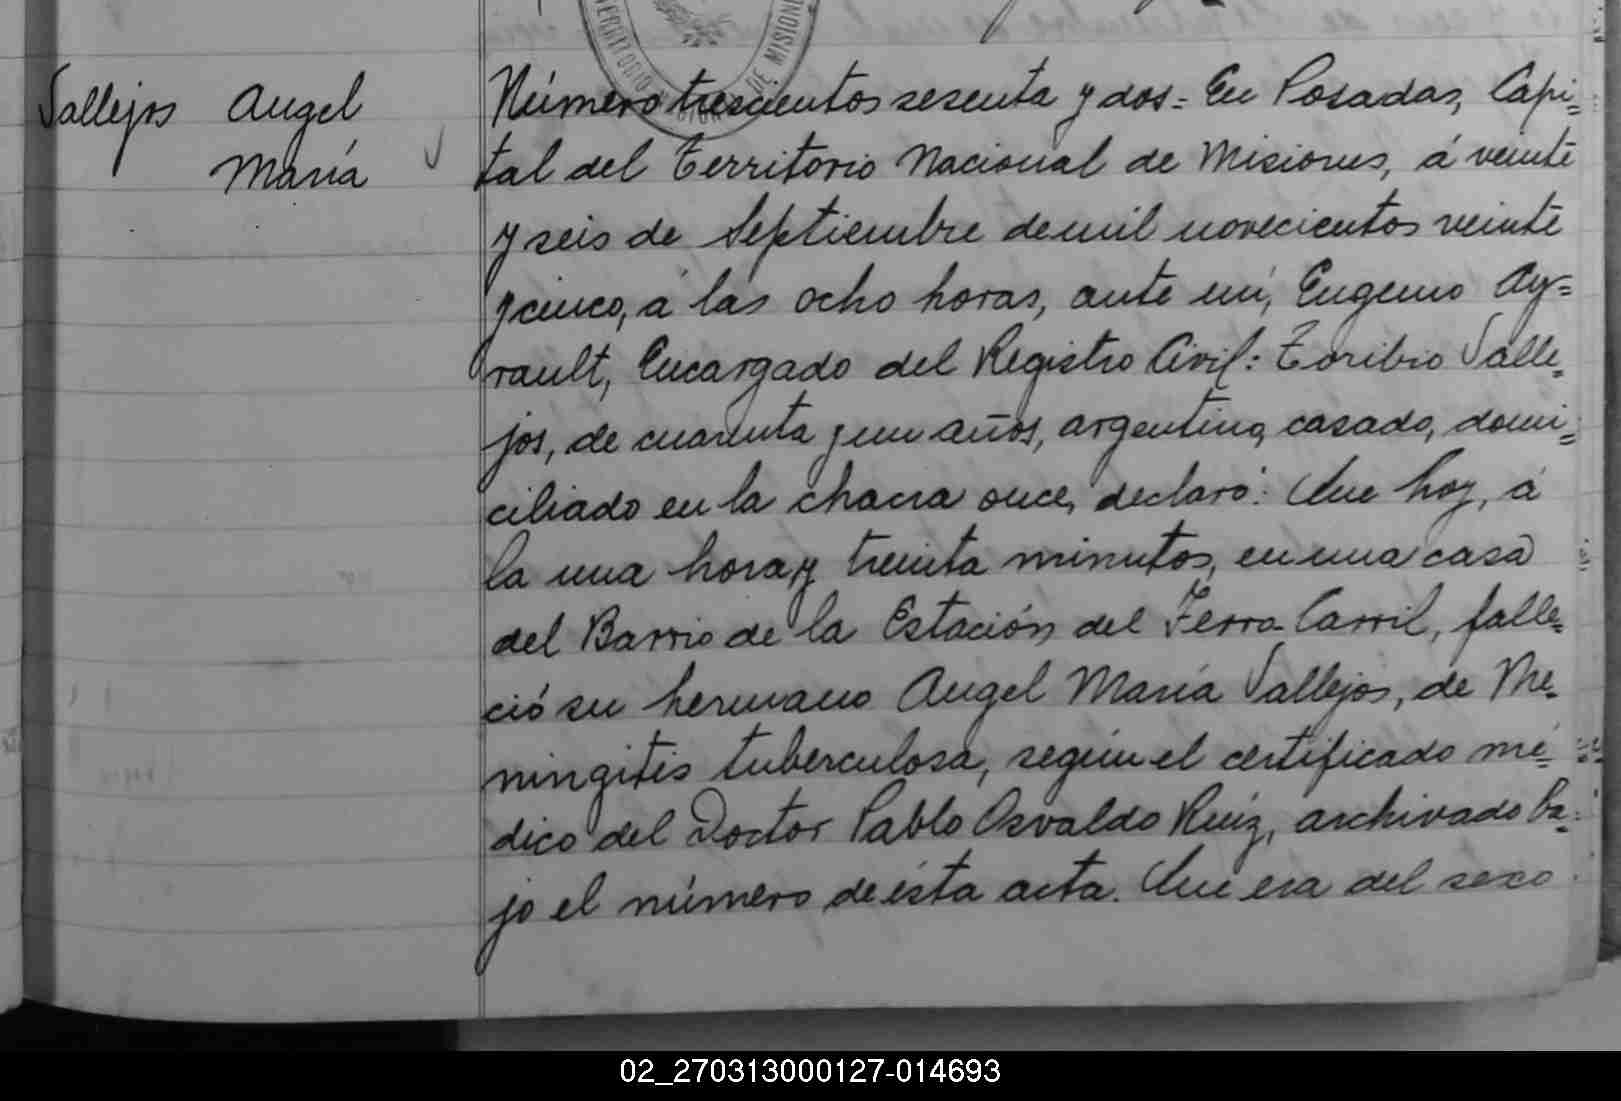 TERRITORIO NACIONAL DE MISIONES
Vallejos Angel
María
Número trescientos sesenta y dos = En Posadas, Capi=
tal del Territorio Nacional de Misiones, á veinte
y seis de Septiembre de mil novecientos veinte
y cinco, á las ocho horas, ante mí, Eugenio Ay=
rault, Encargado del Registro Civil: Toribio Valle=
jos, de cuarenta y un años, argentino, casado, domi=
ciliado en la chacra once, declaró: Que hoy, á
la una hora y treinta minutos, en una casa
del Barrio de la Estación del Ferro-Carril, falle=
ció su hermano Angel María Vallejos, de Me=
ningitis tuberculosa, según el certificado mé=
dico del Doctor Pablo Osvaldo Ruíz, archivado ba=
jo el número de ésta acta. Que era del sexo
02_270313000127-014693